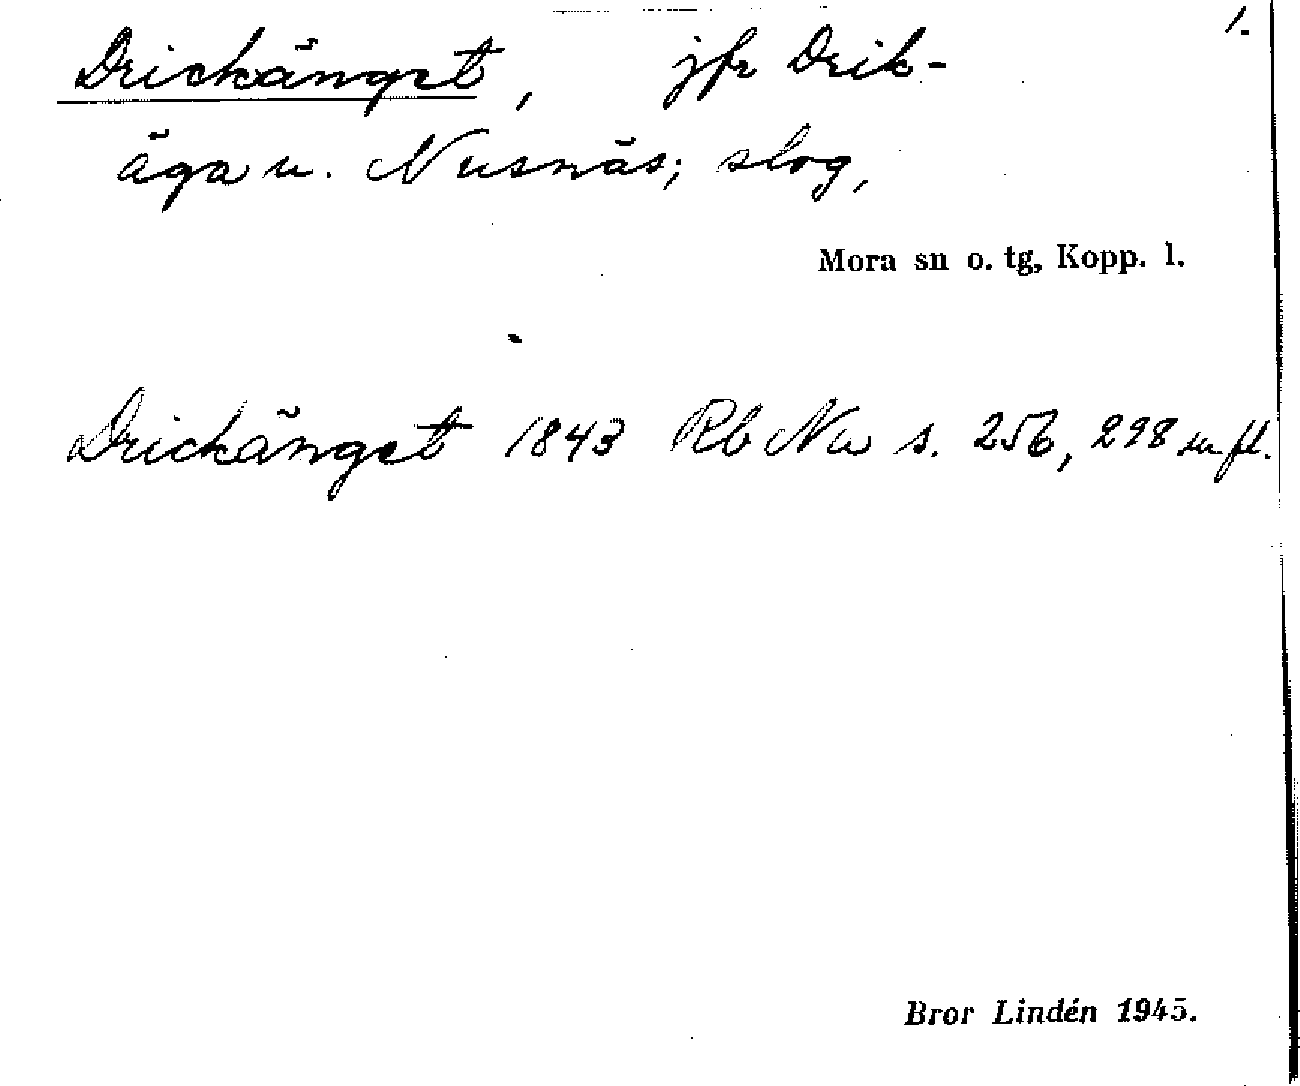 1.
Drickänget, jfr Drik-
äga u. Nusnäs; slog,
Mora sn o. tg, Kopp. l.
Drickänget 1843 Rb Nw s. 256, 298 m fl.
Bror Lindén 1945.